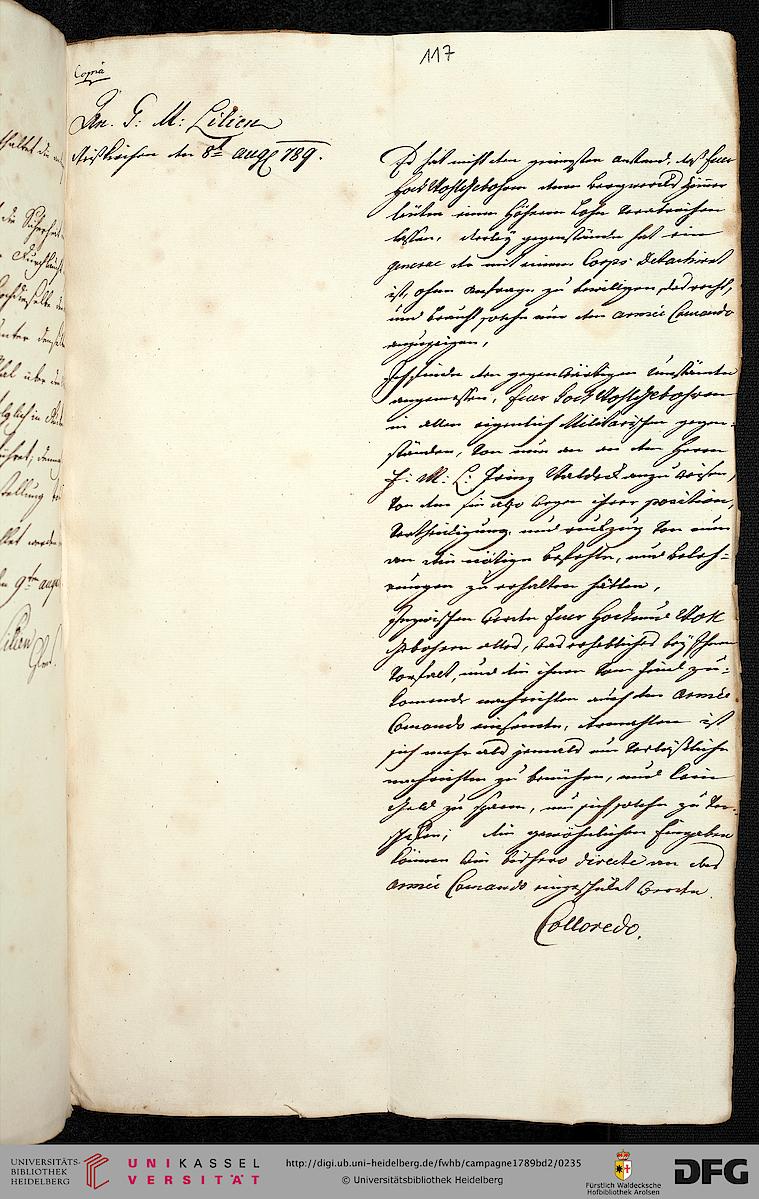 117
Copia
An G: M: Lilien
Weißkirchen den 8t augt 789.
Es hat nicht den geringsten anstand, daß Euer
HochWohlgebohrn denen bergwercks Zimer
leüten einen höhern Lohn verabreichen
lassen, derleÿ gegenstände hat ein
general der mit einem Corps detachirt
ist, ohne anfrage zu bewilligen, das recht,
und braucht solche nur dem armée Comando
anzuzeigen,
Ich finde den gegenwärtigen umständen
angemessen, Euer HochWohlgebohren
in allen eigentlich Militarischen gegen-
ständen, von nun an an den Herrn
F: M: L: Prinz Waldeck anzuweisen,
von dem sie also wegen ihrer position,
Vertheidigung, und rückzug von nun
an die nötige befehle, und beleh-
rungen zu erhalten hätten,
Inzwischen werden Euer Hoch und Wohl
gebohren alles, was erhebliches beÿ Ihnen
vorfalt, und die ihnen vom feind zu-
komende nachrichten auch dem armée
Comando einsenden, dermahlen ist
sich mehr als jemals um verläßliche
nachrichten zu bemühen, und kein
Geld zu sparen, um sich solche zu ver-
schaffen; die gewöhnlichen Eingaben
können wie bishero directe an das
armée Comando eingeschickt werden.
Colloredo.
den 9ten augt
Lilien
UNIVERSITÄTS-
BIBLIOTHEK
HEIDELBERG
UNI KASSEL
VERSITÄT
http://digi.ub.uni-heidelberg.de/fwhb/campagne1789bd2/0235
© Universitätsbibliothek Heidelberg
Fürstlich Waldecksche
Hofbibliothek Arolsen
DFG